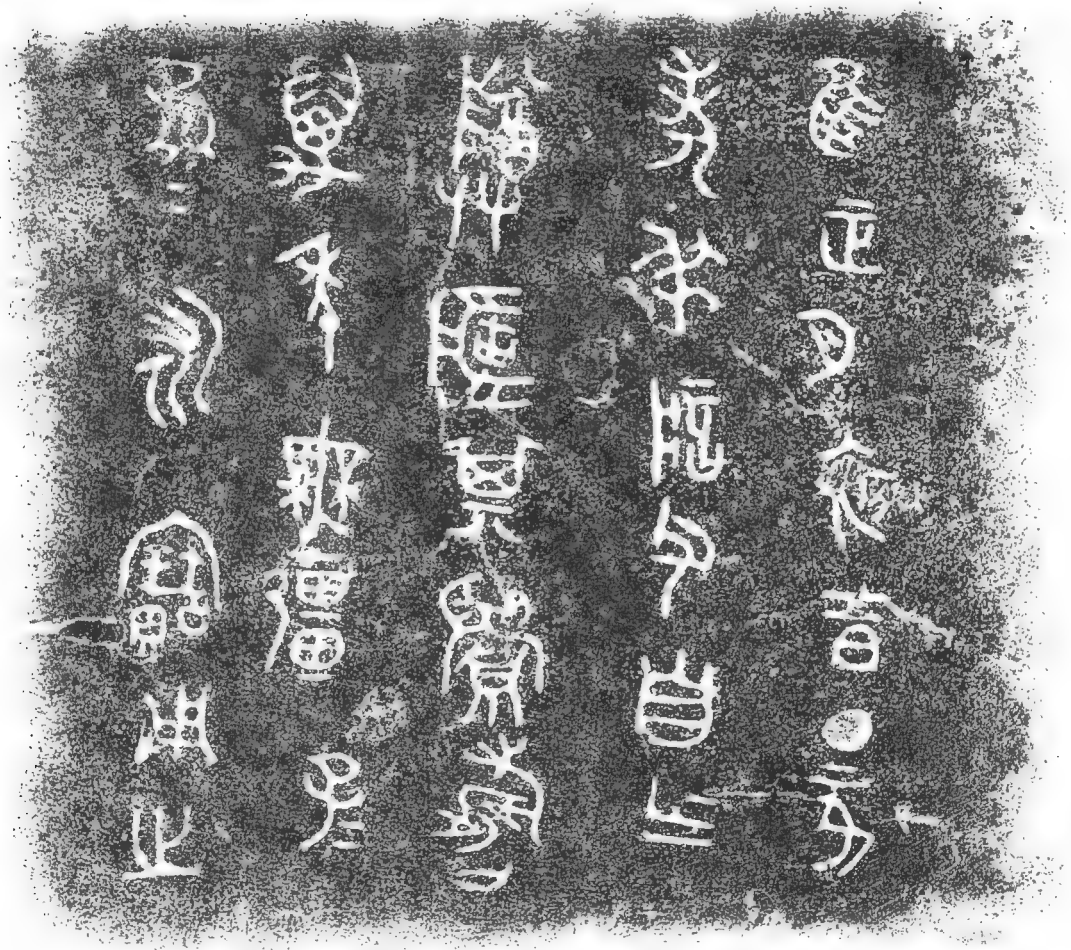 隹正月初吉丁亥
考叔父自乍
尊匠其眉壽
萬年無疆子=
孫=永寶用之